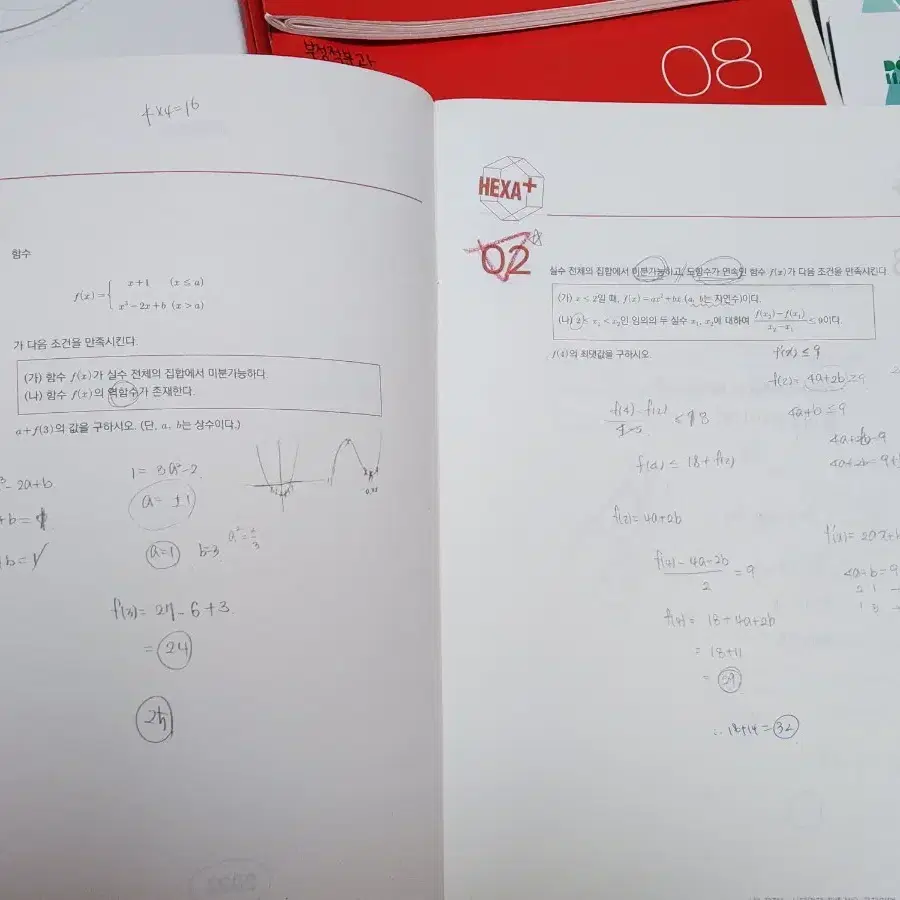 08
함수
f(x) = { x+1 (x ≤ a)
x³−2x+b (x > a)
가 다음 조건을 만족시킨다.
(가) 함수 f(x)가 실수 전체의 집합에서 미분가능하다.
(나) 함수 f(x)의 역함수가 존재한다.
a+f(3)의 값을 구하시오. (단, a, b는 상수이다.)
1 = 3a²−2
a = ±1
a=1 b=3
f(3) = 27−6+3
= 24
25
HEXA+
02
실수 전체의 집합에서 미분가능하고, 도함수가 연속인 함수 f(x)가 다음 조건을 만족시킨다.
(가) x < 2일 때, f(x) = ax²+bx (a, b는 자연수)이다.
(나) 2 < x₁ < x₂인 임의의 두 실수 x₁, x₂에 대하여 f(x₂)−f(x₁) / x₂−x₁ ≤ 9이다.
f(4)의 최댓값을 구하시오.
f'(x) ≤ 9
4a+b ≤ 9
f(4) ≤ 18 + f(2)
f(2) = 4a+2b
f(4) − 4a−2b / 2 = 9
4a+b = 9
f(4) = 18 + 4a+2b
= 18+11
= 29
∴ 18+14 = 32